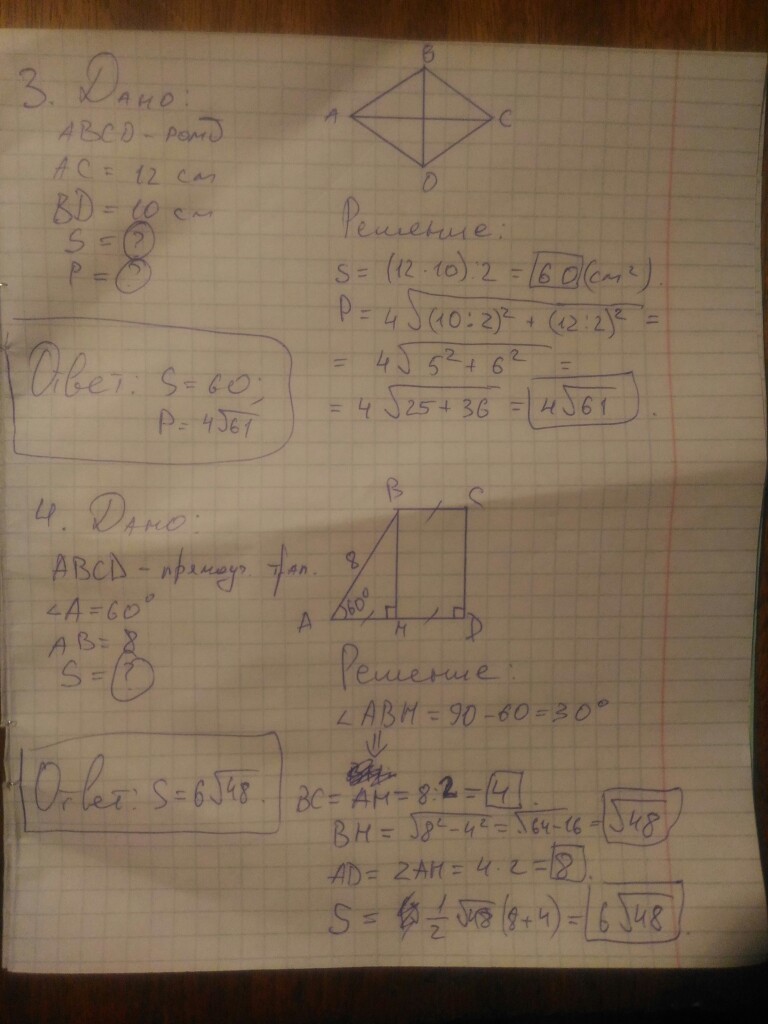 3. Дано:
ABCD - ромб
AC = 12 см
BD = 10 см
S = ?
P = ?
B
A
C
D
Решение:
S = (12 · 10) : 2 = 60 (см²).
P = 4√((10:2)² + (12:2)²) =
= 4√(5² + 6²) =
= 4√(25 + 36) = 4√61.
Ответ: S = 60;
P = 4√61
4. Дано:
ABCD - прямоуг трап.
∠A = 60°
AB = 8
S = ?
B
C
8
60°
A
H
D
Решение:
∠ABH = 90 - 60 = 30°
⇓
BC = AH = 8:2 = 4.
BH = √(8² - 4²) = √(64 - 16) = √48
AD = 2AH = 4 · 2 = 8.
S = 1/2 √48 (8 + 4) = 6√48.
Ответ: S = 6√48.